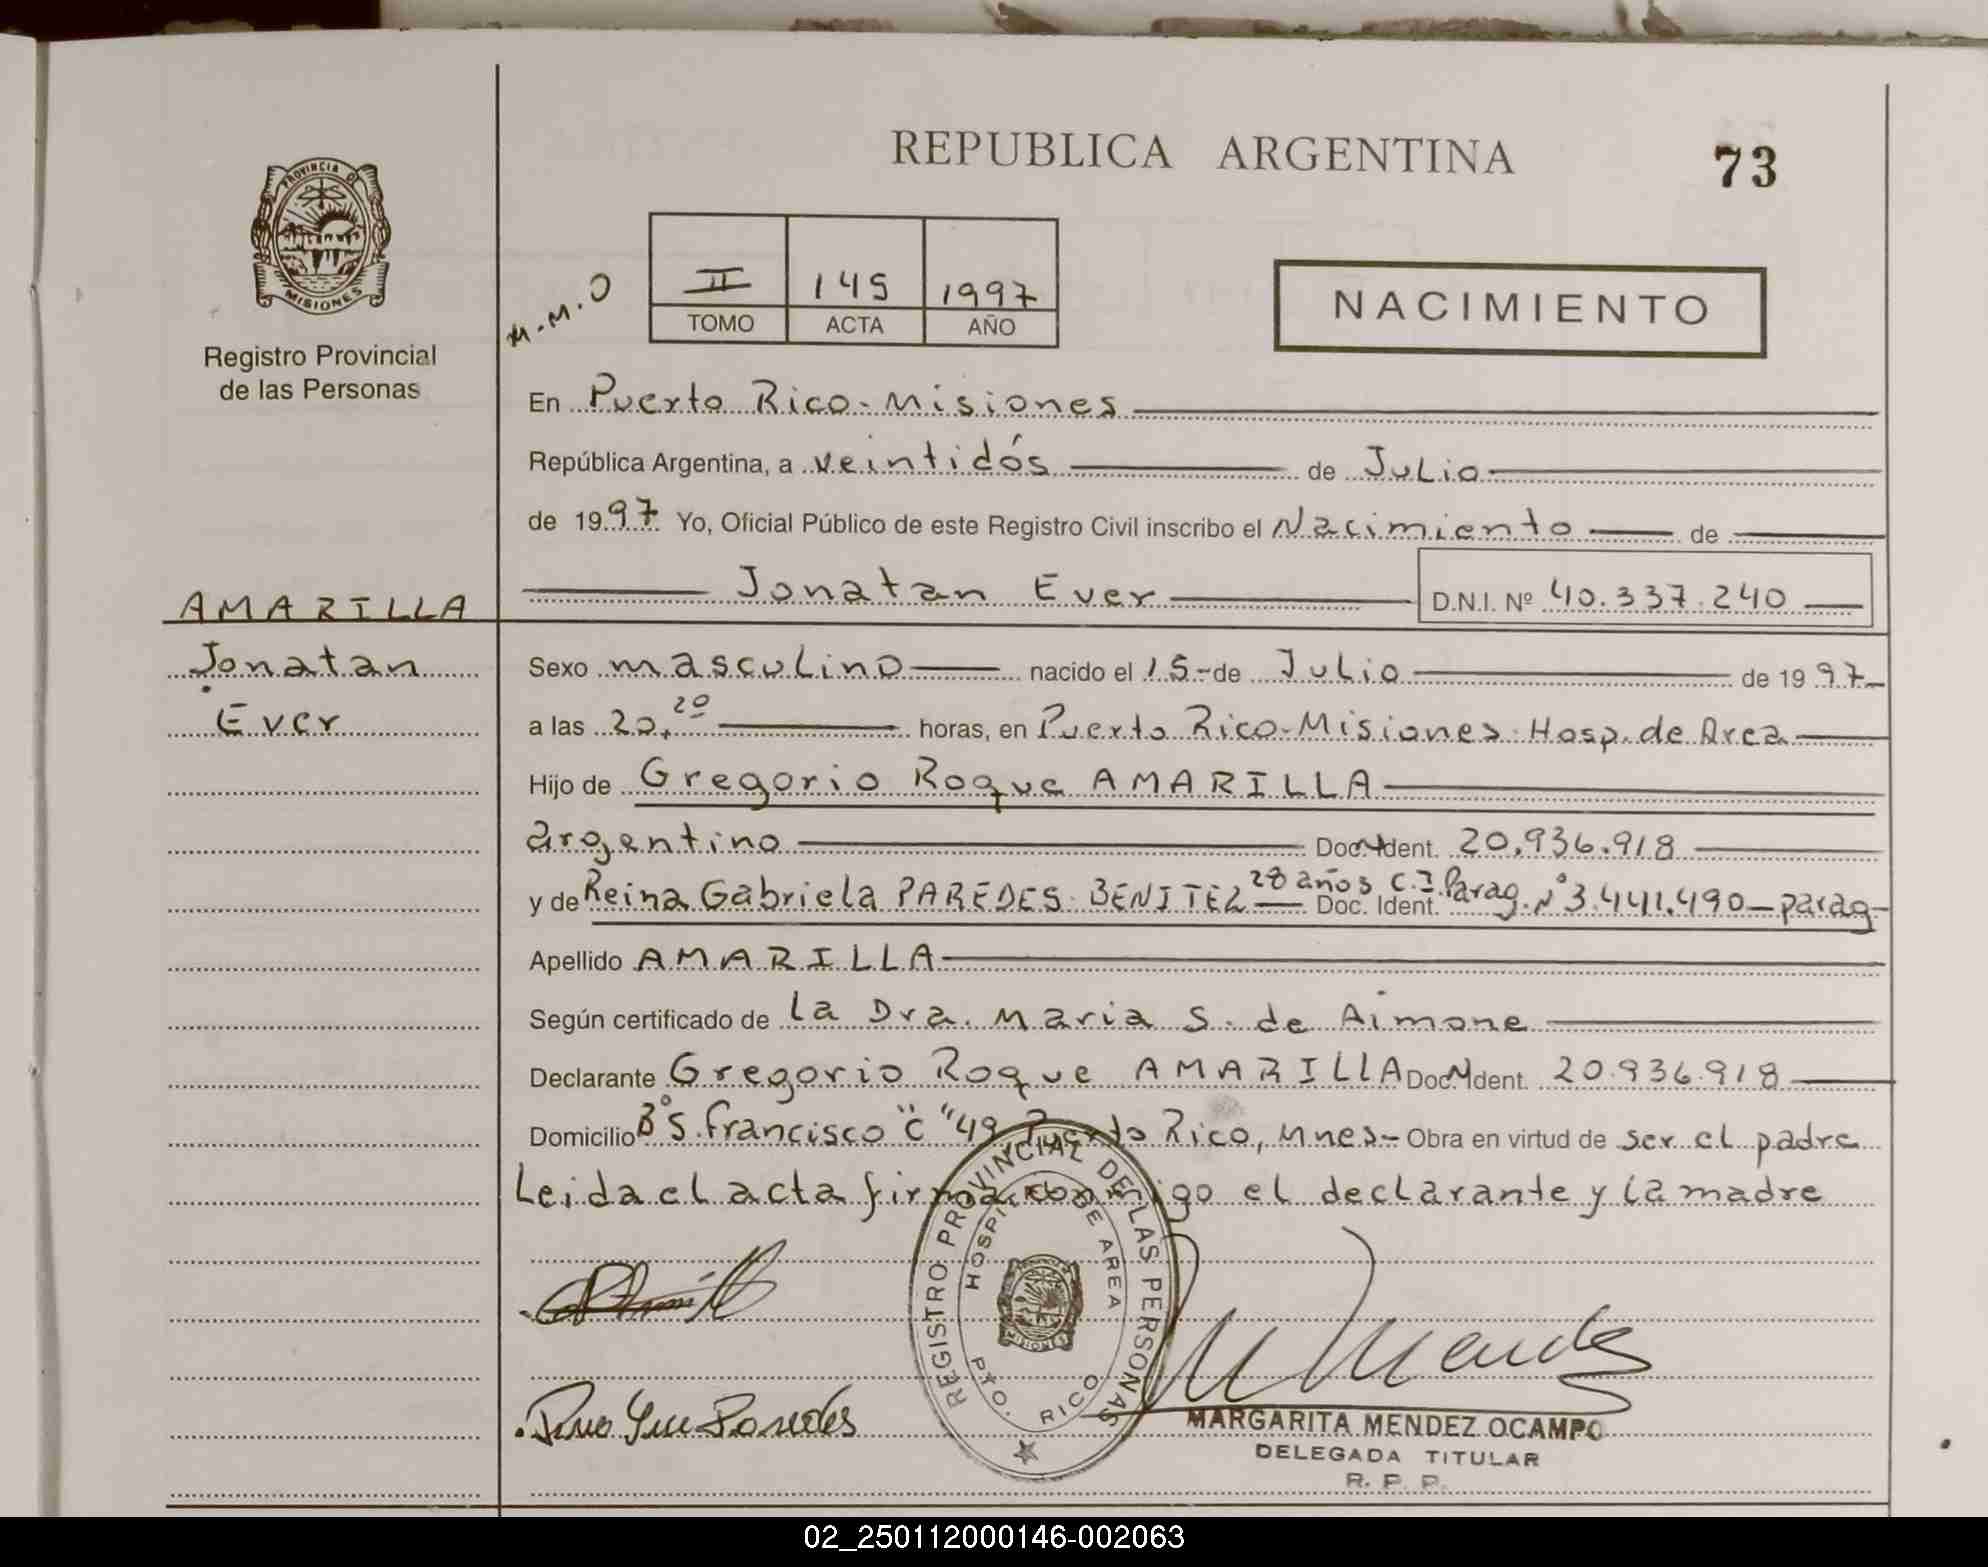 REPUBLICA ARGENTINA
73
PROVINCIA DE
MISIONES
Registro Provincial
de las Personas
M.M.O
II 145 1997
TOMO ACTA AÑO
NACIMIENTO
En Puerto Rico - Misiones
República Argentina, a veintidós de Julio
de 1997 Yo, Oficial Público de este Registro Civil inscribo el Nacimiento de
Jonatan Ever D.N.I. Nº 40.337.240
AMARILLA
Jonatan
Ever
Sexo masculino nacido el 15 - de Julio de 1997
a las 20,20 horas, en Puerto Rico - Misiones - Hosp. de Area
Hijo de Gregorio Roque AMARILLA
argentino Doc. Ident. 20.936.918
y de Reina Gabriela PAREDES BENITEZ 28 años Doc. Ident. C.I. Parag. Nº 3.441.490 - parag -
Apellido AMARILLA
Según certificado de la Dra. Maria S. de Aimone
Declarante Gregorio Roque AMARILLA Doc. Ident. 20.936.918
Domicilio Bº S. Francisco "C" 49 Puerto Rico, Mnes - Obra en virtud de ser el padre
Leida el acta firma conmigo el declarante y la madre
REGISTRO PROVINCIAL DE LAS PERSONAS
HOSPITAL DE AREA
MISIONES
PTO. RICO
M Mendez
MARGARITA MENDEZ OCAMPO
DELEGADA TITULAR
R. P. P.
02_250112000146-002063